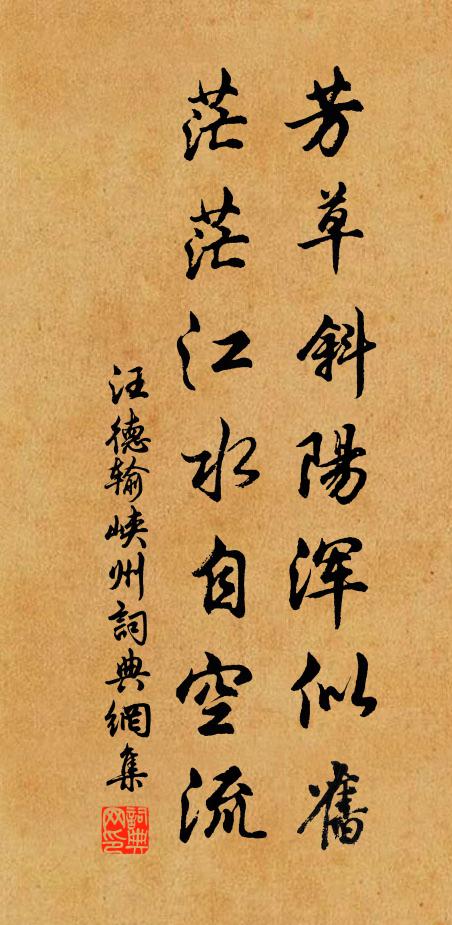 芳草斜陽浑似舊
茫茫江水自空流
汪德输峽州詞典網集
詞典网印